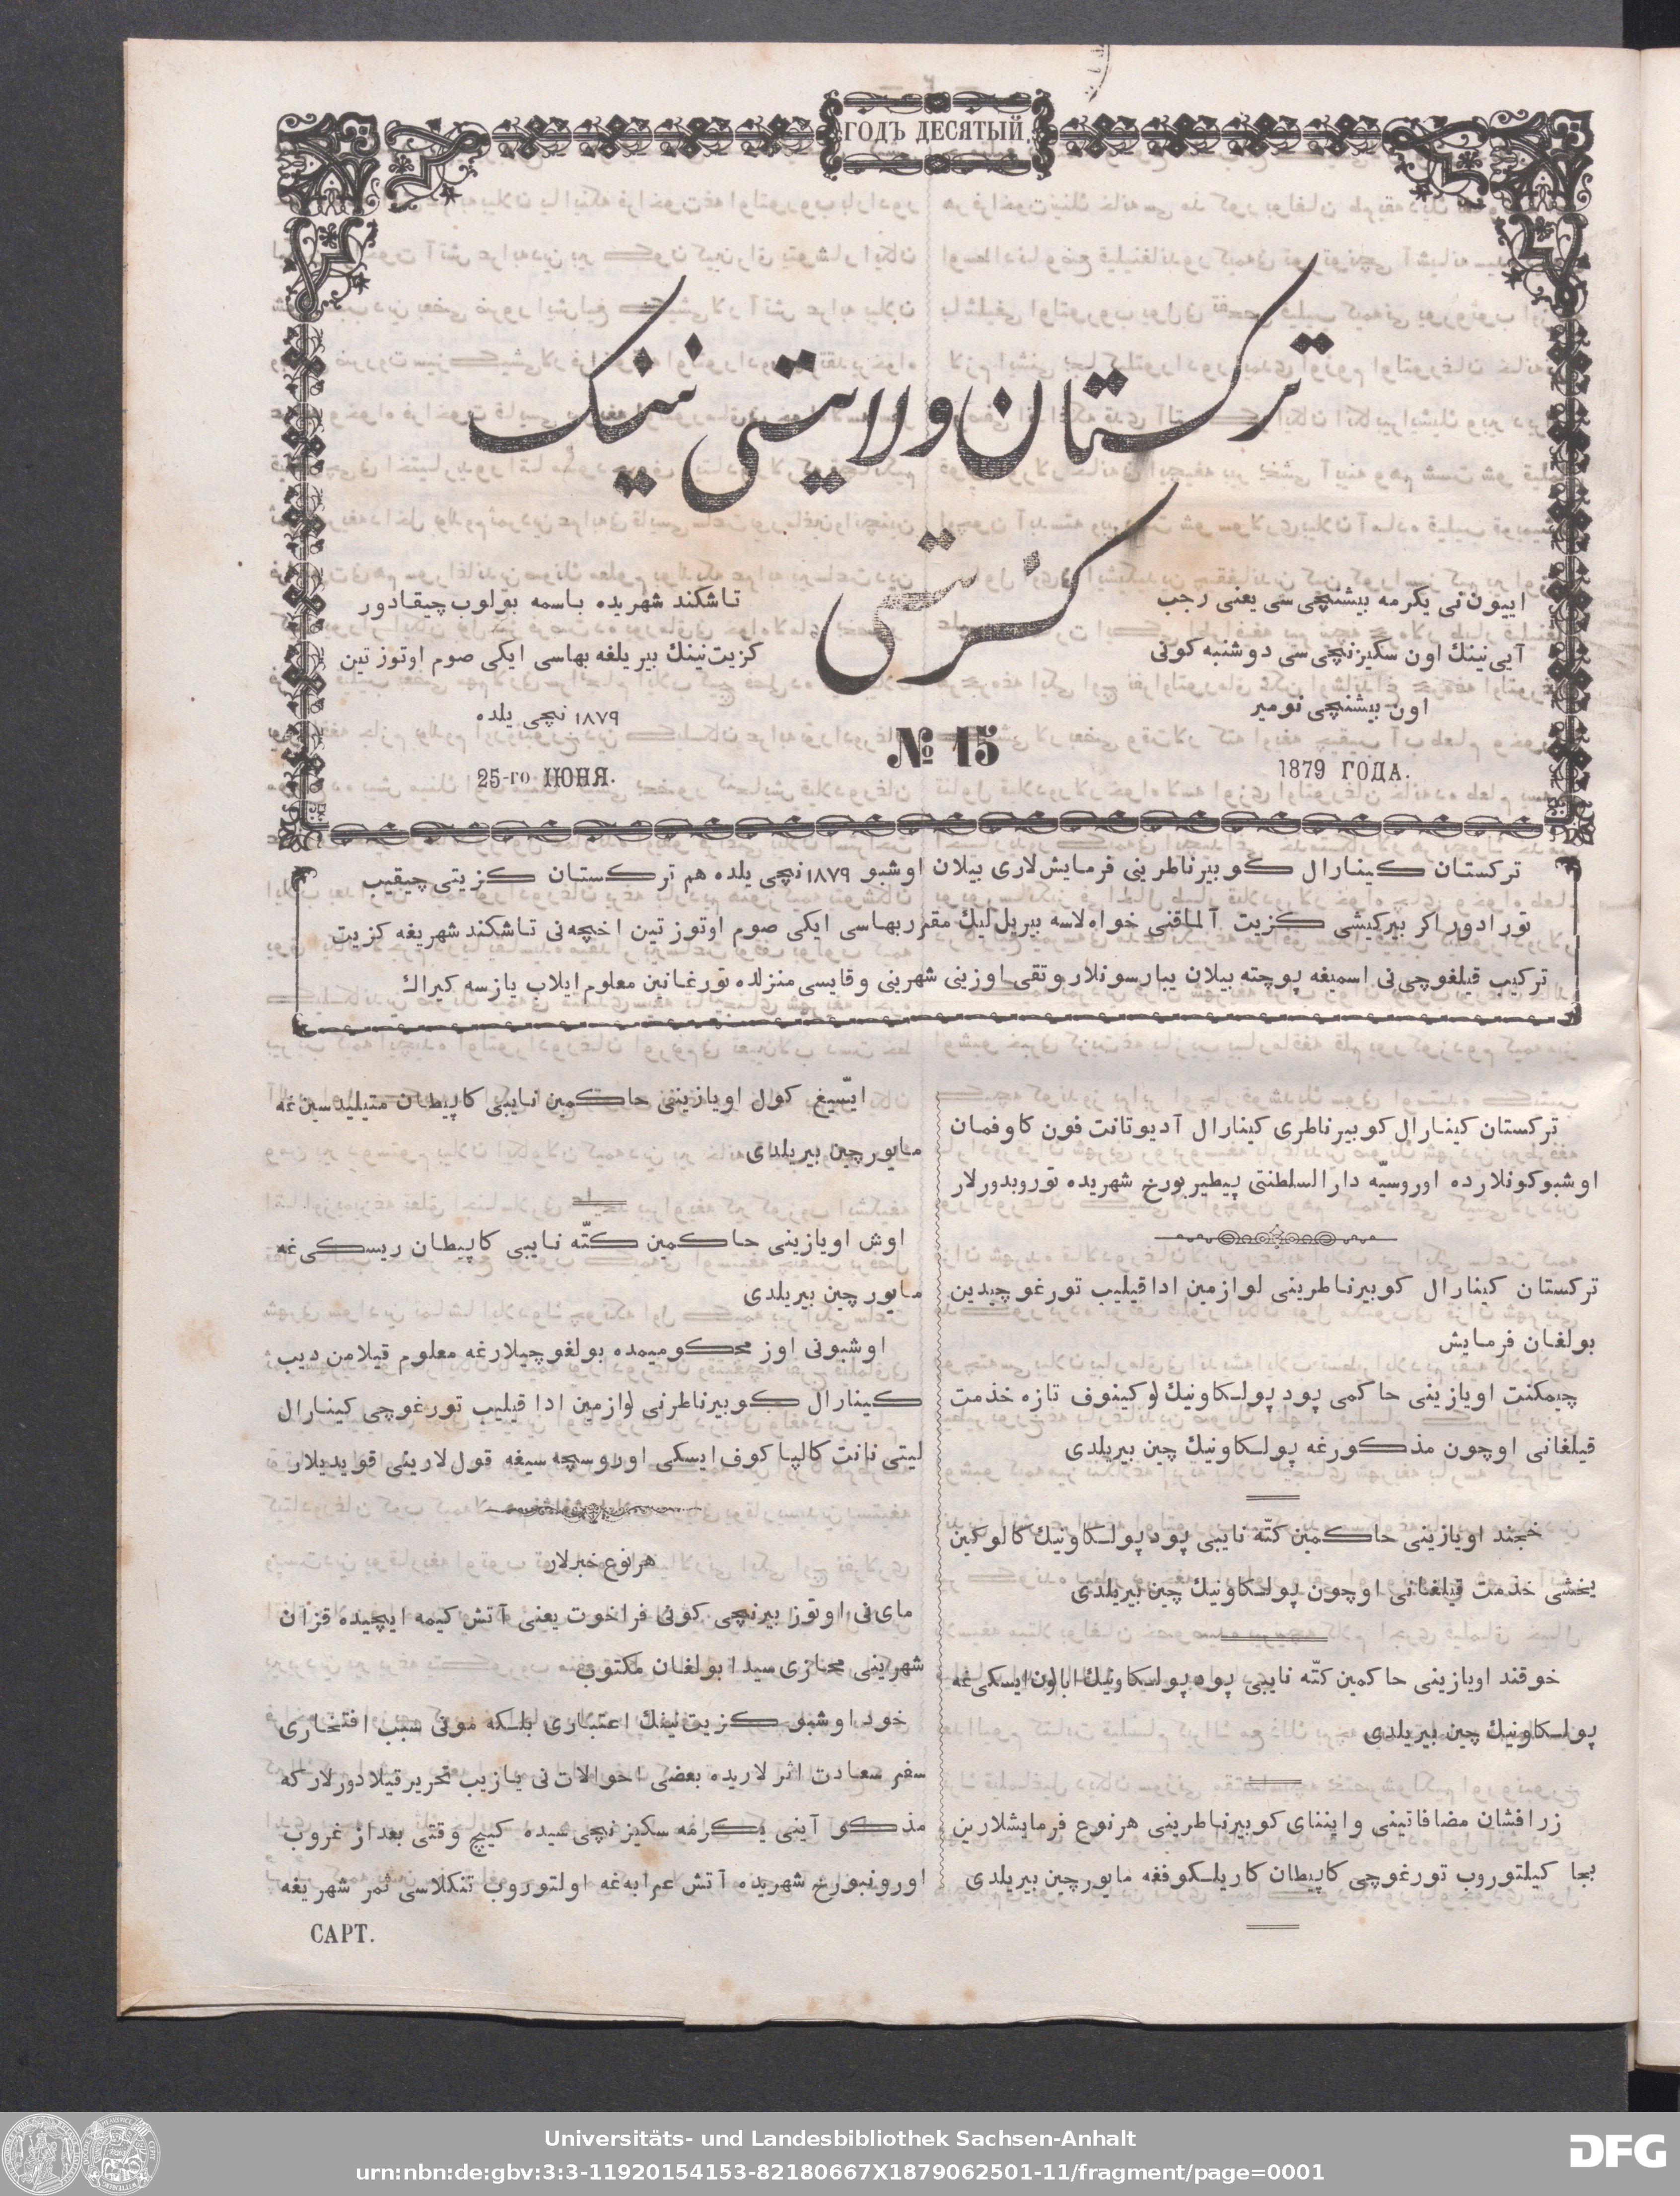 ГОДЪ ДЕСЯТЫЙ.
ترکستان ولایتی نینک
کزیتی
اییون نی یکرمه بیشنچی سی یعنی رجب
آیی نینك اون سکیزنچی سی دوشنبه کونی
اون بیشنچی نومیر
1879 ГОДА.
№ 15
تاشکند شهریده باسمه بولوب چیقادور
کزیت نینك بیر یلغه بهاسی ایکی صوم اوتوز تین
۱۸۷۹ نچی یلده
25-го ІЮНЯ.
ترکستان کینارال کوبیرناطرینی فرمایش لاری بیلان اوشبو ۱۸۷۹ نچی یلده هم ترکستان کزیتی چیقیب
تورادور اکر بیرکیشی کزیت آلماقنی خواه لاسه بیریل لیك مقرر بهاسی ایکی صوم اوتوز تین اخچه نی تاشکند شهریغه کزیت
ترکیب قیلغوچی نی اسمیغه پوچته بیلان یبارسونلار وتقی اوزینی شهرینی وقایسی منزلده تورغانین معلوم ایلاب یازسه کیراك
ترکستان کینارال کوبیرناطری کینارال آدیوتانت فون کاوفمان
اوشبو کونلارده اوروسیّه دارالسلطنتی پیطیربورخ شهریده توروبدورلار
ترکستان کینارال کوبیرناطرینی لوازمین اداقیلیب تورغوچیدین
بولغان فرمایش
چیمکنت اویازینی حاکمی پود پولکاونیك لوکینوف تازه خذمت
قیلغانی اوچون مذکورغه پولکاونیك چین بیریلدی
خجند اویازینی حاکمین کتّه نایبی پود پولکاونیك کالوکین
یخشی خذمت قیلغانی اوچون پولکاونیك چین بیریلدی
خوقند اویازینی حاکمین کتّه نایبی پود پولکاونیك ابالون ایسکی غه
پولکاونیك چین بیریلدی
زرافشان مضافاتینی واینّنای کوبیرناطرینی هرنوع فرمایشلارین
بجا کیلتوروب تورغوچی کاپیطان کاریلکوفغه مایورچین بیریلدی
ایسّیغ کول اویازینی حاکمین نایبی کاپیطان متیلیدسین غه
مایورچین بیریلدی
اوش اویازینی حاکمین کتّه نایبی کاپیطان ریسکی غه
مایورچین بیریلدی
اوشبونی اوز محکومیمده بولغوچیلارغه معلوم قیلامن دیب
کینارال کوبیرناطرنی لوازمین ادا قیلیب تورغوچی کینارال
لیتی نانت کالپاکوف ایسکی اوروسچه سیغه قول لارینی قویدیلار
هرنوع خبرلار
مای نی اوتوز بیرنچی کونی فراخوت یعنی آتش کیمه ایچیده قزان
شهرینی محنازی سیدا بولغان مکتوب
خود اوشبو کزیت نینك اعتباری بلکه مونی سبب افتخاری
سفر سعادت اثرلاریده بعضی احوالات نی یازیب تحریر قیلادورلار که
مذکو آینی یکرمه سکیزنچی سیده کیچ وقتی بعد از غروب
اورونبورخ شهریده آتش عرابه غه اولتوروب تنکلاسی ثمر شهریغه
САРТ.
Universitäts- und Landesbibliothek Sachsen-Anhalt
urn:nbn:de:gbv:3:3-11920154153-82180667X1879062501-11/fragment/page=0001
DFG